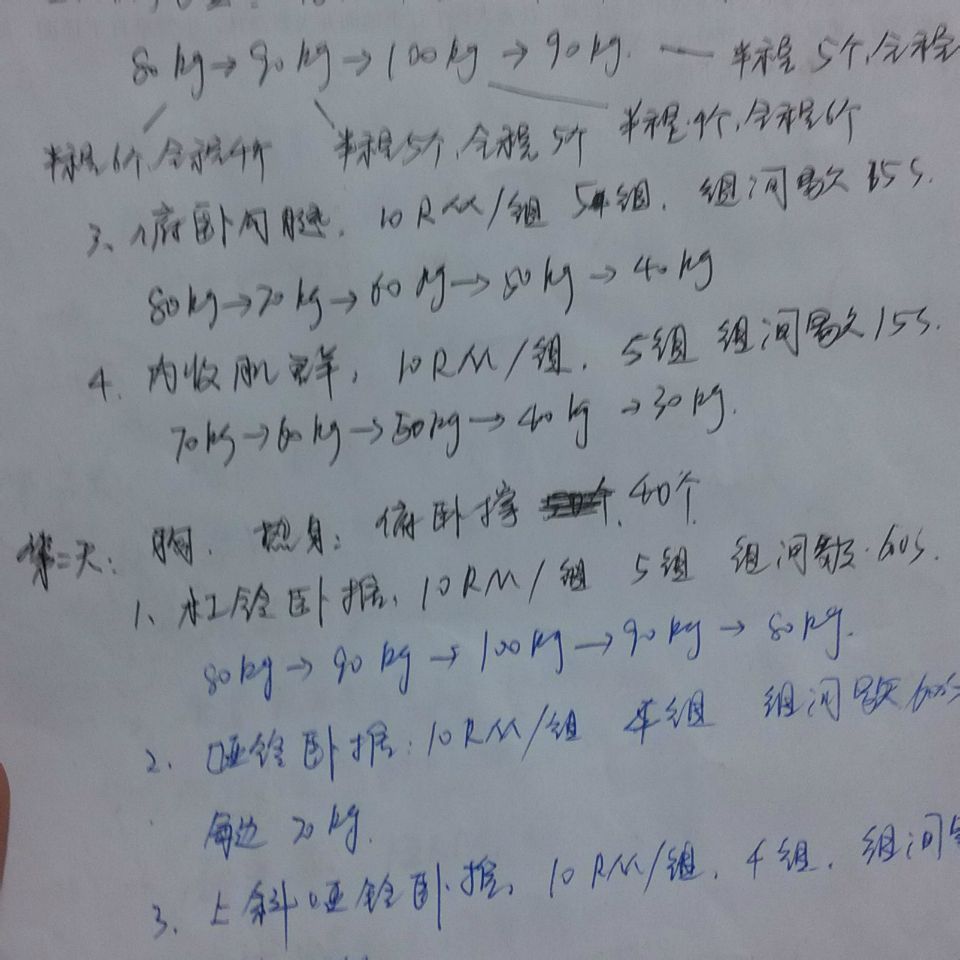 80kg→90kg→100kg→90kg. — 半程5个,全程
半程6个,全程4个 半程5个,全程5个 半程4个,全程6个
3、俯卧勾腿, 10RM/组 5组, 组间歇 15s.
80kg→70kg→60kg→50kg→40kg
4. 内收肌群, 10RM/组, 5组 组间歇15s.
70kg→60kg→50kg→40kg→30kg.
第二天: 胸. 热身: 俯卧撑 40个
1、杠铃卧推, 10RM/组 5组 组间歇. 60s.
80kg→90kg→100kg→90kg→80kg.
2、哑铃卧推: 10RM/组 4组 组间歇60s
每边 20kg.
3、上斜哑铃卧推, 10RM/组, 4组, 组间